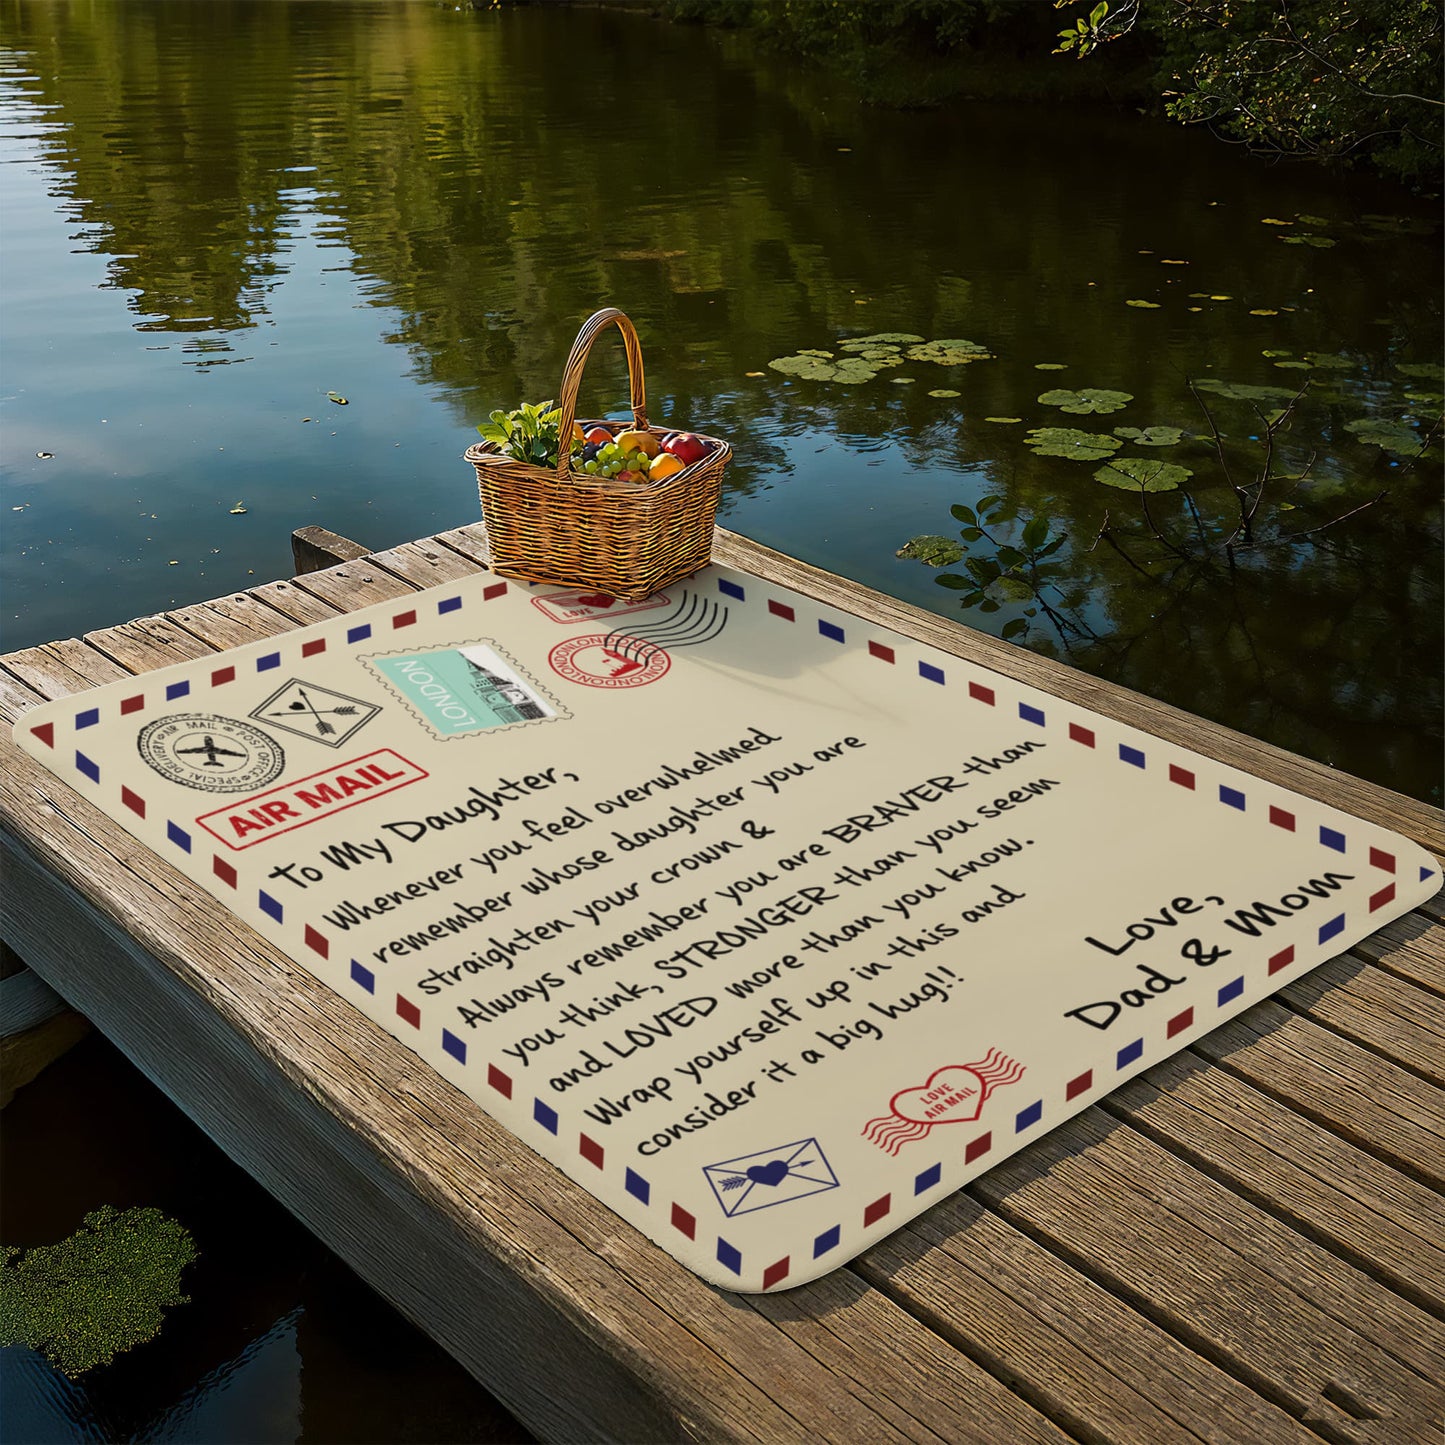 LOVE MAIL
LONDONLONDONLONDONLONDON
LONDON
AIR MAIL POST OFFICE SPECIAL DELIVERY
AIR MAIL
To My Daughter,
Whenever you feel overwhelmed
remember whose daughter you are
straighten your crown &
Always remember you are BRAVER than
you think, STRONGER than you seem
and LOVED more than you know.
Wrap yourself up in this and
consider it a big hug!!
Love,
Dad & Mom
LOVE
AIR MAIL